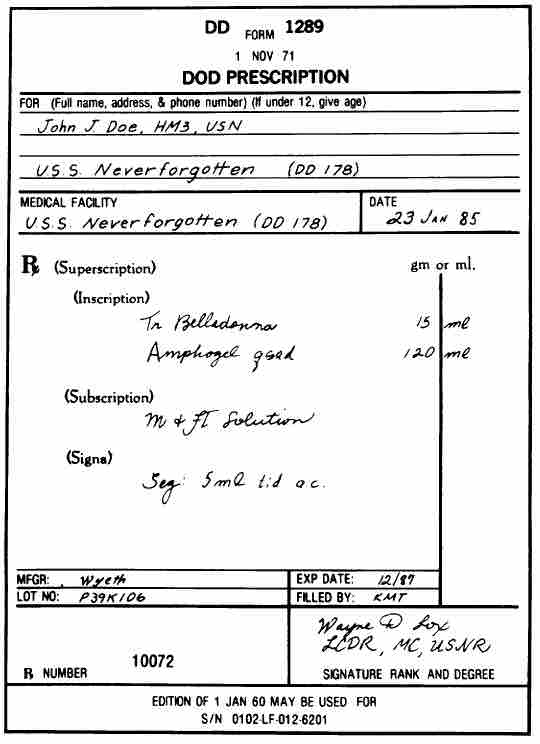 DD FORM 1289
1 NOV 71
DOD PRESCRIPTION
FOR (Full name, address, & phone number) (If under 12, give age)
John J. Doe, HM3, USN
U.S.S. Neverforgotten (DD 178)
MEDICAL FACILITY DATE
U.S.S. Neverforgotten (DD 178) 23 JAN 85
℞ (Superscription) gm or ml.
(Inscription)
Tr Belladonna 15 ml
Amphogel qsad 120 ml
(Subscription)
M & FT Solution
(Signa)
Sig: 5ml t.i.d a.c.
MFGR: Wyeth EXP DATE: 12/87
LOT NO: P39K106 FILLED BY: KMT
Wayne D Lox
LCDR, MC, USNR
10072
℞ NUMBER SIGNATURE RANK AND DEGREE
EDITION OF 1 JAN 60 MAY BE USED FOR
S/N 0102-LF-012-6201